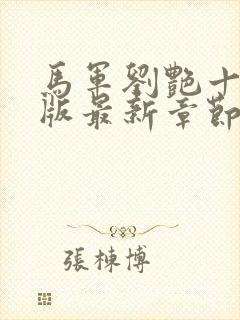 馬軍劉艷十
版最新章節
張棟博